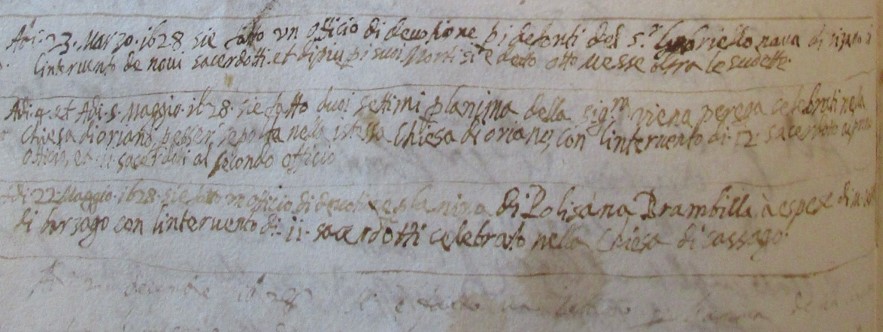 Adi. 23. Marzo. 1628. sie fatto un officio di devotione p i defonti del s.r Gabriello nava di
l'intervento de novi sacerdotti. et di piu p i suoi Morti si è detto otto Messe oltra le sudette.
Adi. 4. et Adi. 5. Maggio. 1628. sie fatto duoi settimi p l'anima della sig.ra viena perega celebrati nela
chiesa di oriano, p esser sepolta nella istessa Chiesa di oriano, con l'intervento di 12. sacerdoti al primo
officio, et 11. sacerdotti al secondo officio
Adi 22 Maggio. 1628. sie fatto un officio di devotione p l'anima di Polisana Brambilla à espese di
di barzago con l'intervento di. 11. sacerdotti celebrato nella Chiesa di cassago.
decembre 1628 si è fatto un